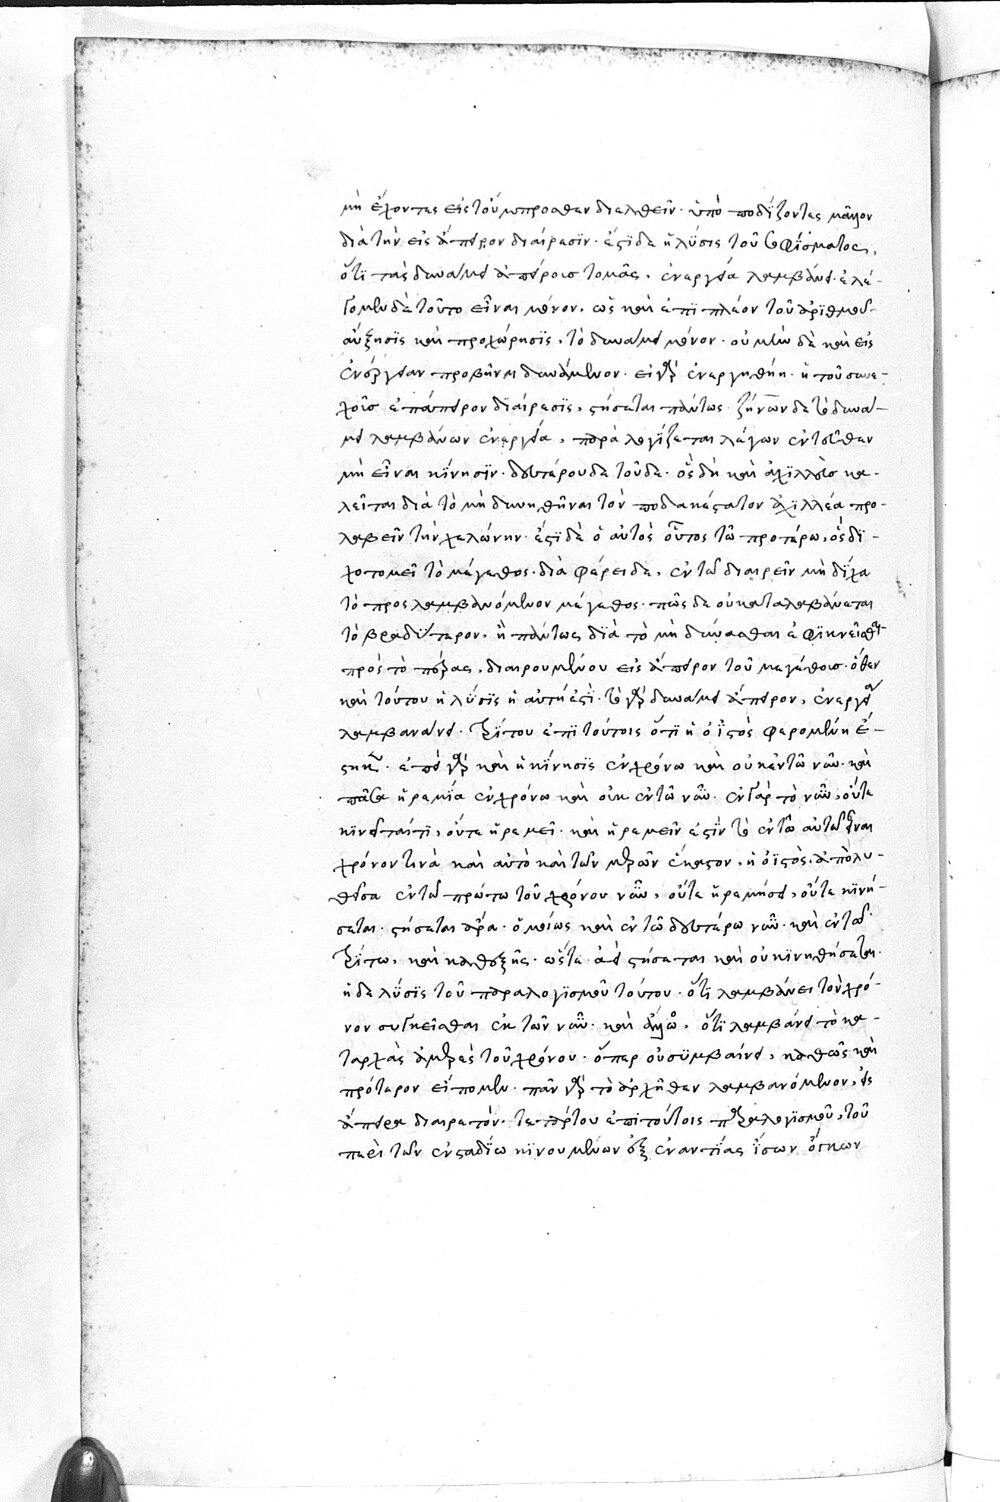 μὴ ἔχοντες εἰς τοὔμπροσθεν διελθεῖν· ὑποποδίζοντες μᾶλλον
διὰ τὴν εἰς ἄπειρον διαίρεσιν· ἔστι δὲ ἡ λύσις τοῦ σοφίσματος,
ὅτι τὰς δυνάμει ἀπείρους τομὰς, ἐνεργείᾳ λαμβάνει· ἐλέ-
γομεν δὲ τοῦτο εἶναι μόνον, ὡς καὶ ἐπὶ πλέον τοῦ ἀριθμοῦ
αὔξησις καὶ προχώρησις, τὸ δυνάμει μόνον· οὐ μὴν δὲ καὶ εἰς
ἐνέργειαν προβῆναι δυνάμενον· εἰ γὰρ ἐνεργηθείη· ἡ τοῦ συνε-
χοῦς ἐπάπειρον διαίρεσις, στήσεται πάντως· ζήνων δὲ τὸ δυνά-
μει λαμβάνων ἐνεργείᾳ, παραλογίζεται λέγων ἐντεῦθεν
μὴ εἶναι κίνησιν· δευτέρου δὲ τοῦδε· ὃς δὴ καὶ ἀχιλλεὺς κα-
λεῖται διὰ τὸ μὴ δυνηθῆναι τὸν ποδωκέστατον ἀχιλλέα προ-
λαβεῖν τὴν χελώνην· ἔστι δὲ ὁ αὐτὸς οὗτος τῷ προτέρω, ὃς δι-
χοτομεῖ τὸ μέγεθος· διαφέρει δὲ, ἐν τῷ διαιρεῖν μὴ δίχα
τὸ προσλαμβανόμενον μέγεθος· πῶς δὲ οὐ καταλαμβάνεται
τὸ βραδύτερον, ἢ πάντως διὰ τὸ μὴ δύνασθαι ἐφικνεῖσθαι
πρὸς τὸ πέρας, διαιρουμένου εἰς ἄπειρον τοῦ μεγέθους· ὅθεν
καὶ τούτου ἡ λύσις ἡ αὐτή ἐστι· τὸ γὰρ δυνάμει ἄπειρον, ἐνεργείᾳ
λαμβάνει· τρίτου ἐπὶ τούτοις ὅτι ἡ ὀϊστὸς φερομένη ἕ-
στηκεν· ἐπεὶ γὰρ καὶ ἡ κίνησις ἐν χρόνω καὶ οὐκ ἐν τῷ νῦν· καὶ
πᾶσα ἠρεμία ἐν χρόνω καὶ οὐκ ἐν τῷ νῦν· ἐν γὰρ τὸ νῦν, οὔτε
κινεῖταί τι, οὔτε ἠρεμεῖ· καὶ ἠρεμεῖν ἐστὶν τὸ ἐν τῷ αὐτῷ εἶναι
χρόνον τινὰ καὶ αὐτὸ καὶ τῶν μερῶν ἕκαστον, ἡ ὀϊστὸς ἀπολυ-
θεῖσα ἐν τῷ πρώτω τοῦ χρόνου νῦν, οὔτε ἠρεμήσει, οὔτε κινή-
σεται· στήσεται ἄρα· ὁμοίως καὶ ἐν τῷ δευτέρω νῦν· καὶ ἐν τῷ
τρίτω, καὶ καθεξῆς· ὥστε ἀεὶ στήσεται καὶ οὐ κινηθήσεται·
ἡ δὲ λύσις τοῦ παραλογισμοῦ τούτου· ὅτι λαμβάνει τὸν χρό-
νον συγκεῖσθαι ἐκ τῶν νῦν· καὶ ἄλλως, ὅτι λαμβάνει τὸ κα-
ταρχὰς ἀμερὲς τοῦ χρόνου· ὅπερ οὐ συμβαίνει, καθὼς καὶ
πρότερον εἴπομεν· πᾶν γὰρ τὸ ἀρχῆθεν λαμβανόμενον, εἰς
ἄπειρα διαιρετόν· τετάρτου ἐπὶ τούτοις παραλογισμοῦ, τοῦ
περὶ τῶν ἐν σταδίω κινουμένων ἐξ ἐναντίας ἴσων ὄγκων